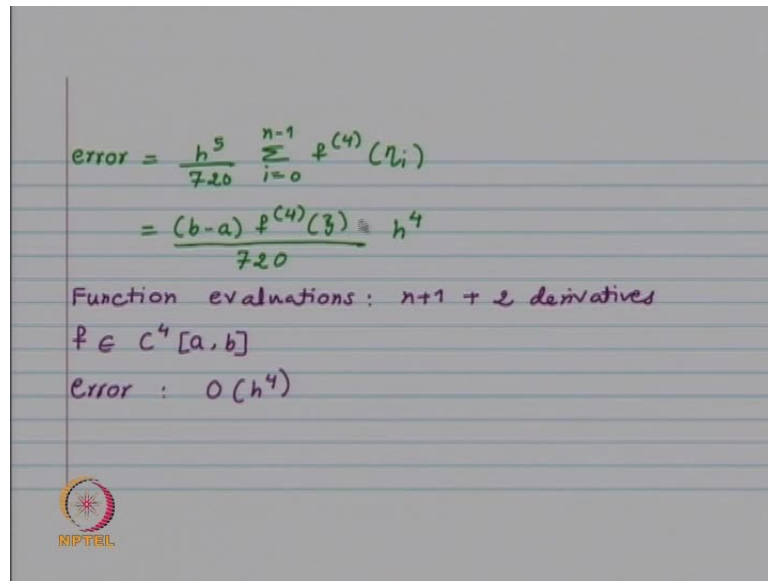 error = h^5/720 Σ_{i=0}^{n-1} f^(4) (η_i)
= (b-a) f^(4)(ξ)/720 h^4
Function evaluations : n+1 + 2 derivatives
f ∈ C^4 [a, b]
error : O(h^4)
NPTEL